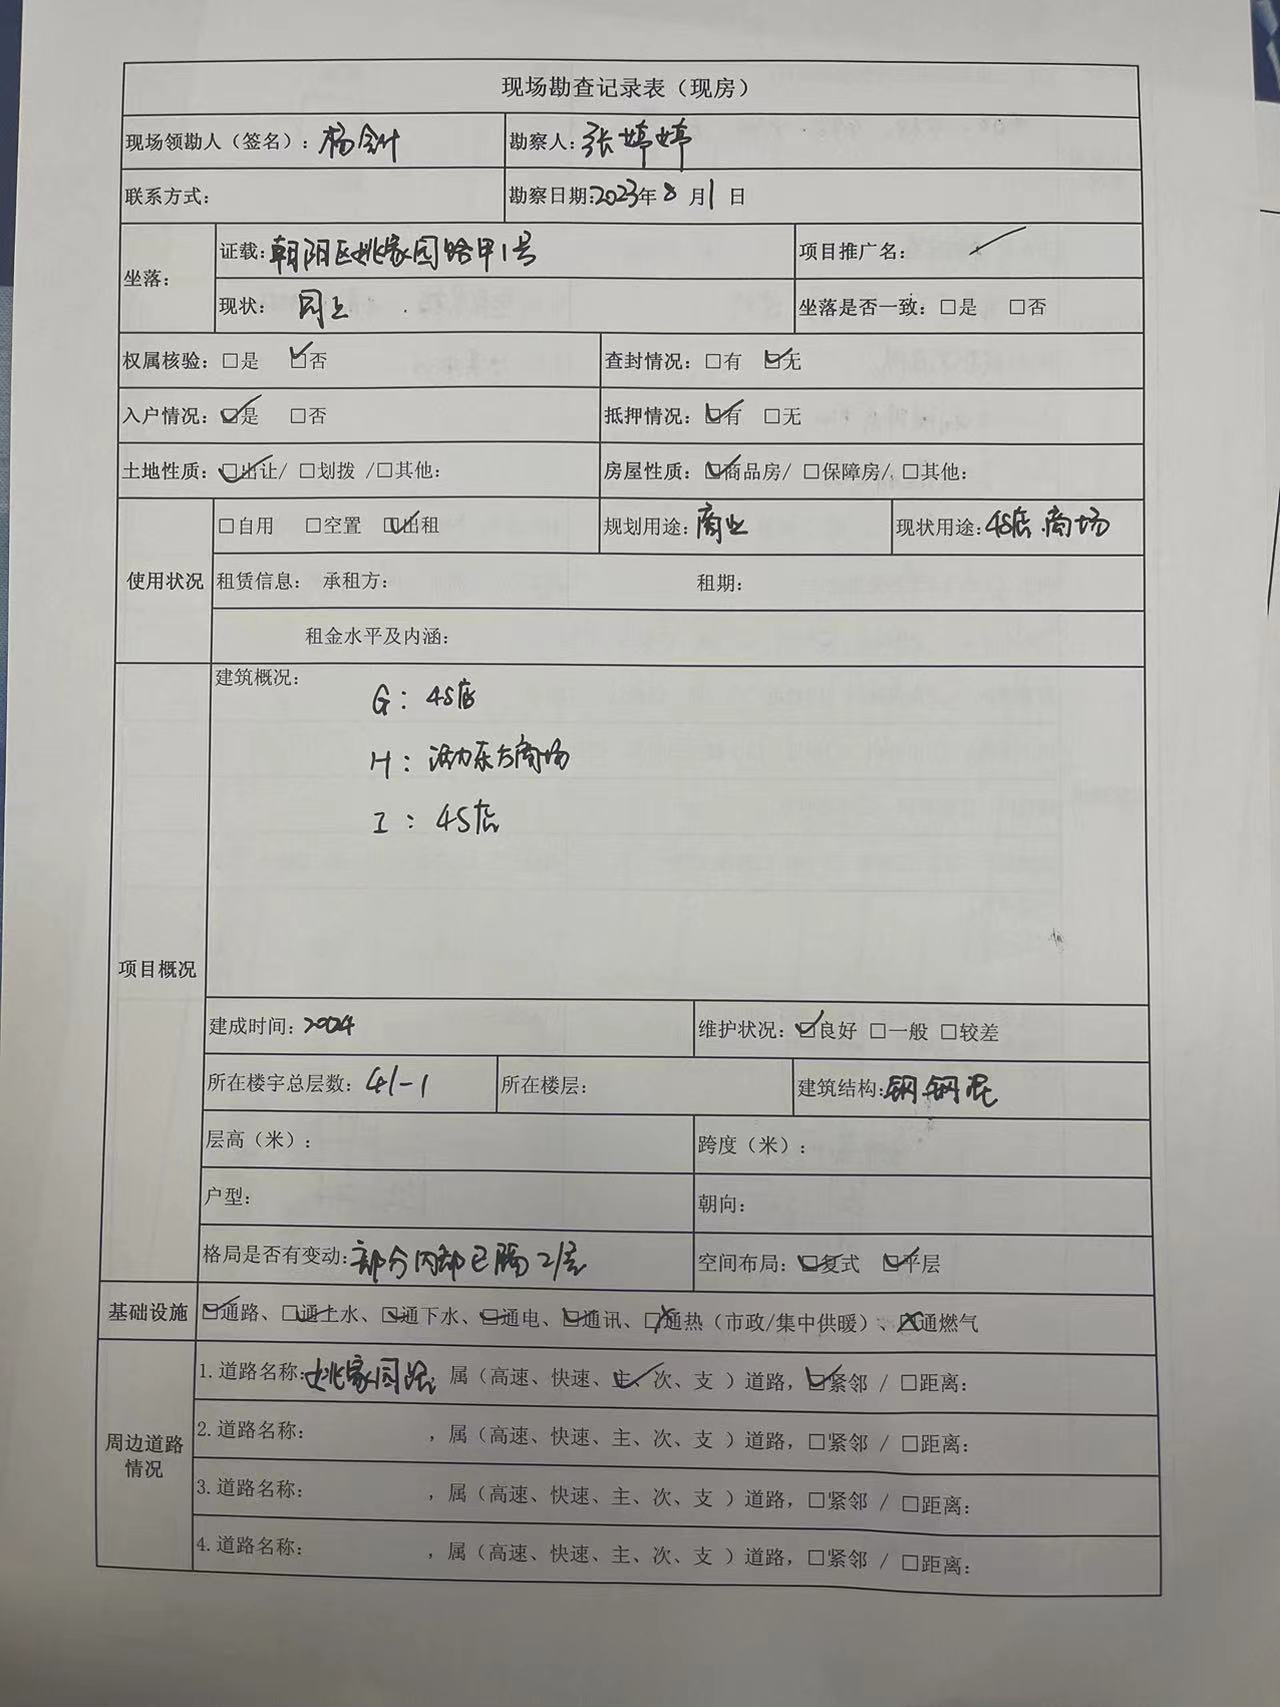 现场勘查记录表（现房）
现场领勘人（签名）： 杨 勘察人：张婷婷
联系方式： 勘察日期:2023年8月1日
坐落：
证载：朝阳区姚家园路甲1号 项目推广名：
现状：同上 坐落是否一致：□是 □否
权属核验：□是 ☑否 查封情况：□有 ☑无
入户情况：☑是 □否 抵押情况：☑有 □无
土地性质：☑出让/ □划拨 /□其他： 房屋性质：☑商品房/ □保障房/ □其他：
使用状况
□自用 □空置 ☑出租 规划用途：商业 现状用途：4S店、商场
租赁信息： 承租方： 租期：
租金水平及内涵：
项目概况
建筑概况：
G：4S店
H：活力东方商场
I：4S店
建成时间：2004 维护状况：☑良好 □一般 □较差
所在楼宇总层数：4/-1 所在楼层： 建筑结构：钢、钢混
层高（米）： 跨度（米）：
户型： 朝向：
格局是否有变动：部分内部已隔2层 空间布局：☑复式 ☑平层
基础设施 ☑通路、☑通上水、☑通下水、☑通电、☑通讯、☒通热（市政/集中供暖）、☒通燃气
周边道路情况
1.道路名称：姚家园路，属（高速、快速、主、次、支 ）道路，☑紧邻 / □距离：
2.道路名称： ，属（高速、快速、主、次、支 ）道路，□紧邻 / □距离：
3.道路名称： ，属（高速、快速、主、次、支 ）道路，□紧邻 / □距离：
4.道路名称： ，属（高速、快速、主、次、支 ）道路，□紧邻 / □距离：